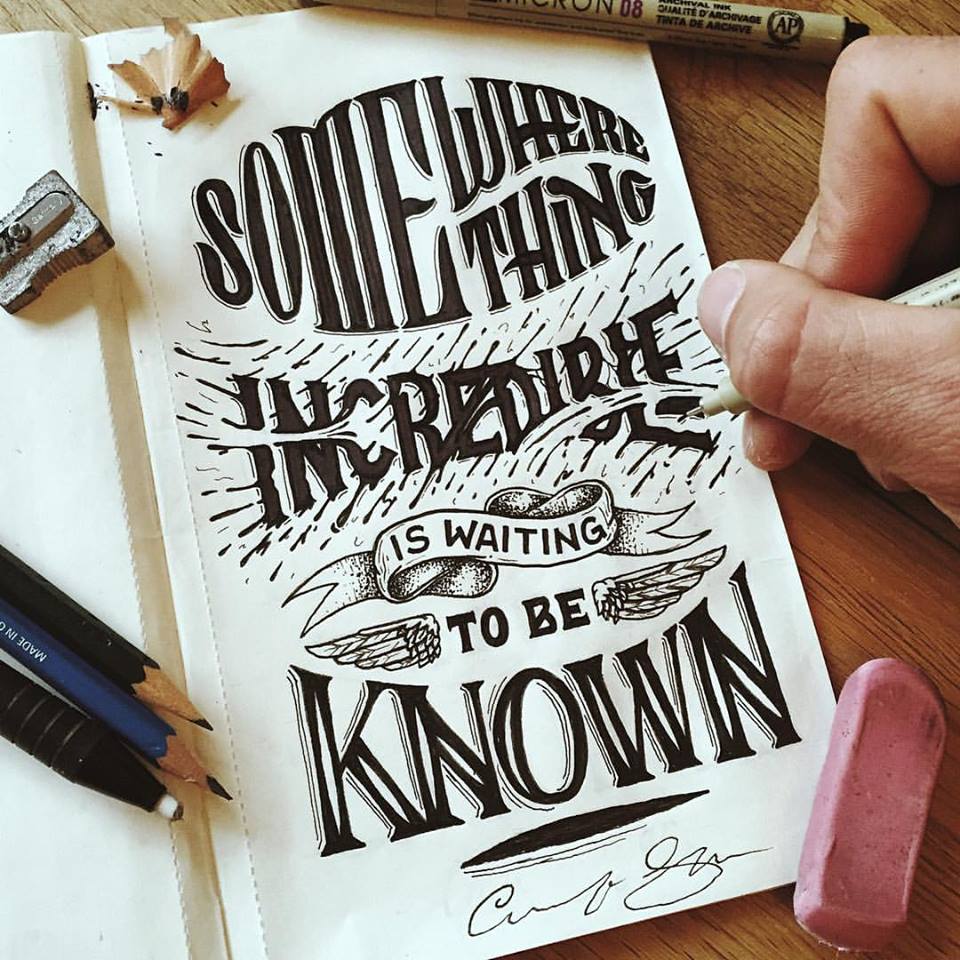 MICRON 08
ARCHIVAL INK
QUALITÉ D'ARCHIVAGE
TINTA DE ARCHIVE
AP
SOMEWHERE
THING
INCREDIBLE
IS WAITING
TO BE
KNOWN
MADE IN